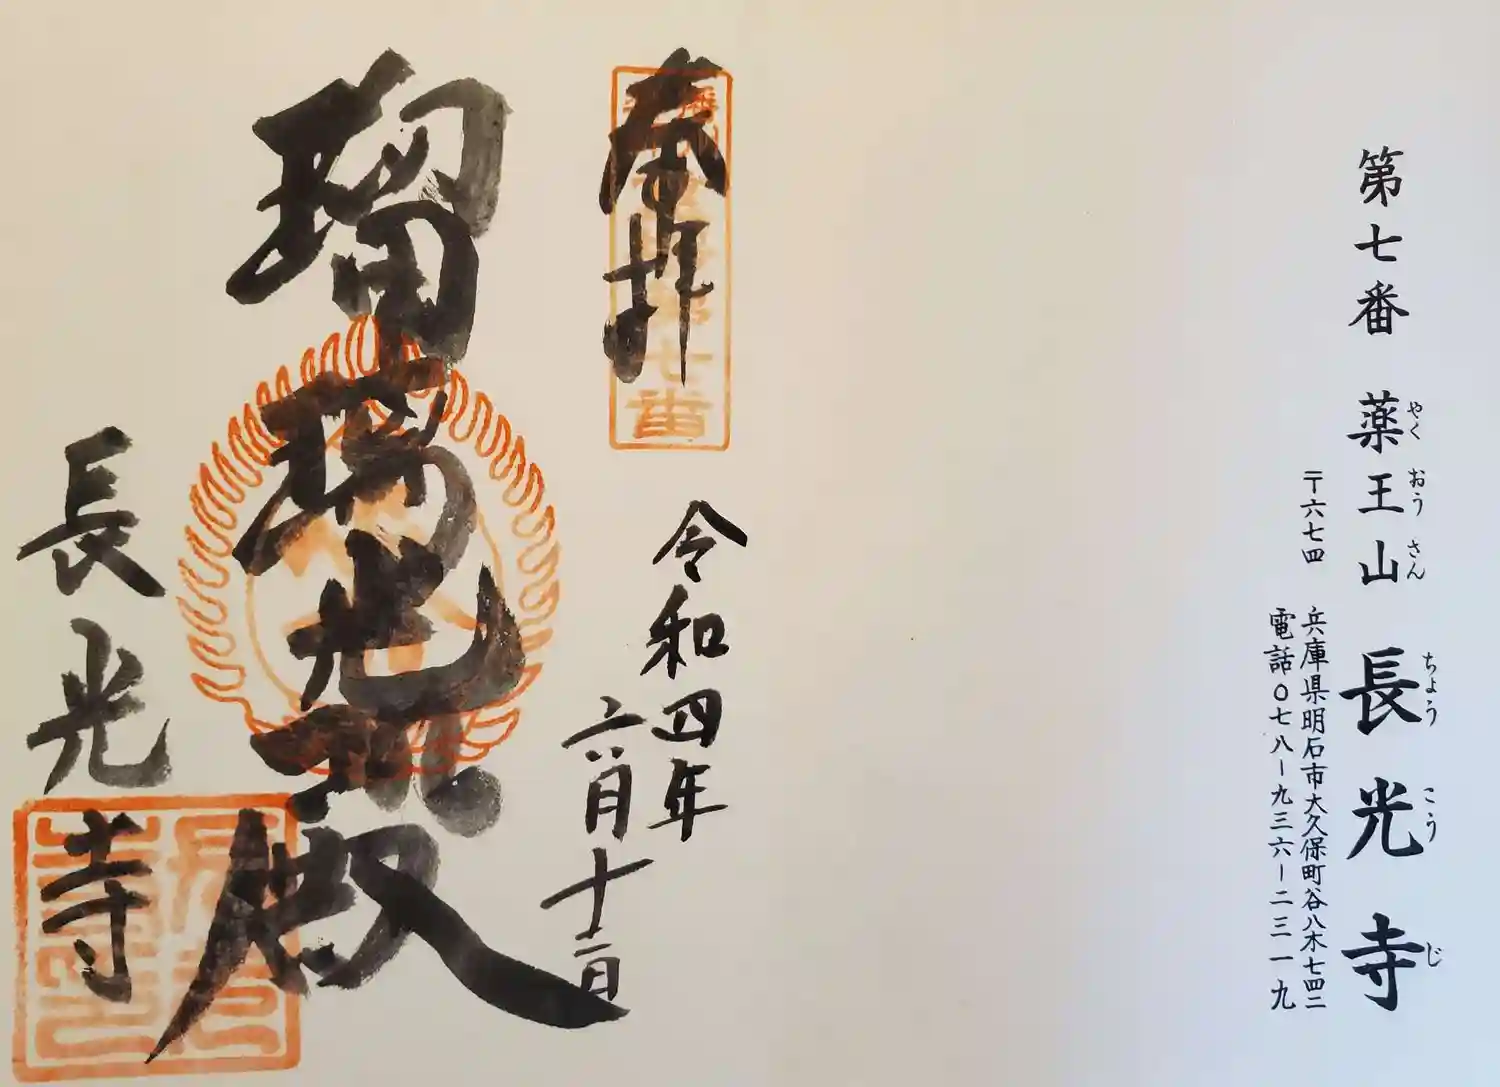 第七番 薬王山 長光寺
やくおうさん ちょうこうじ
〒六七四 兵庫県明石市大久保町谷八木七四二
電話〇七八ー九三六ー二三一九
奉拝
第七番
令和四年
六月十二日
瑠璃光殿
長光寺